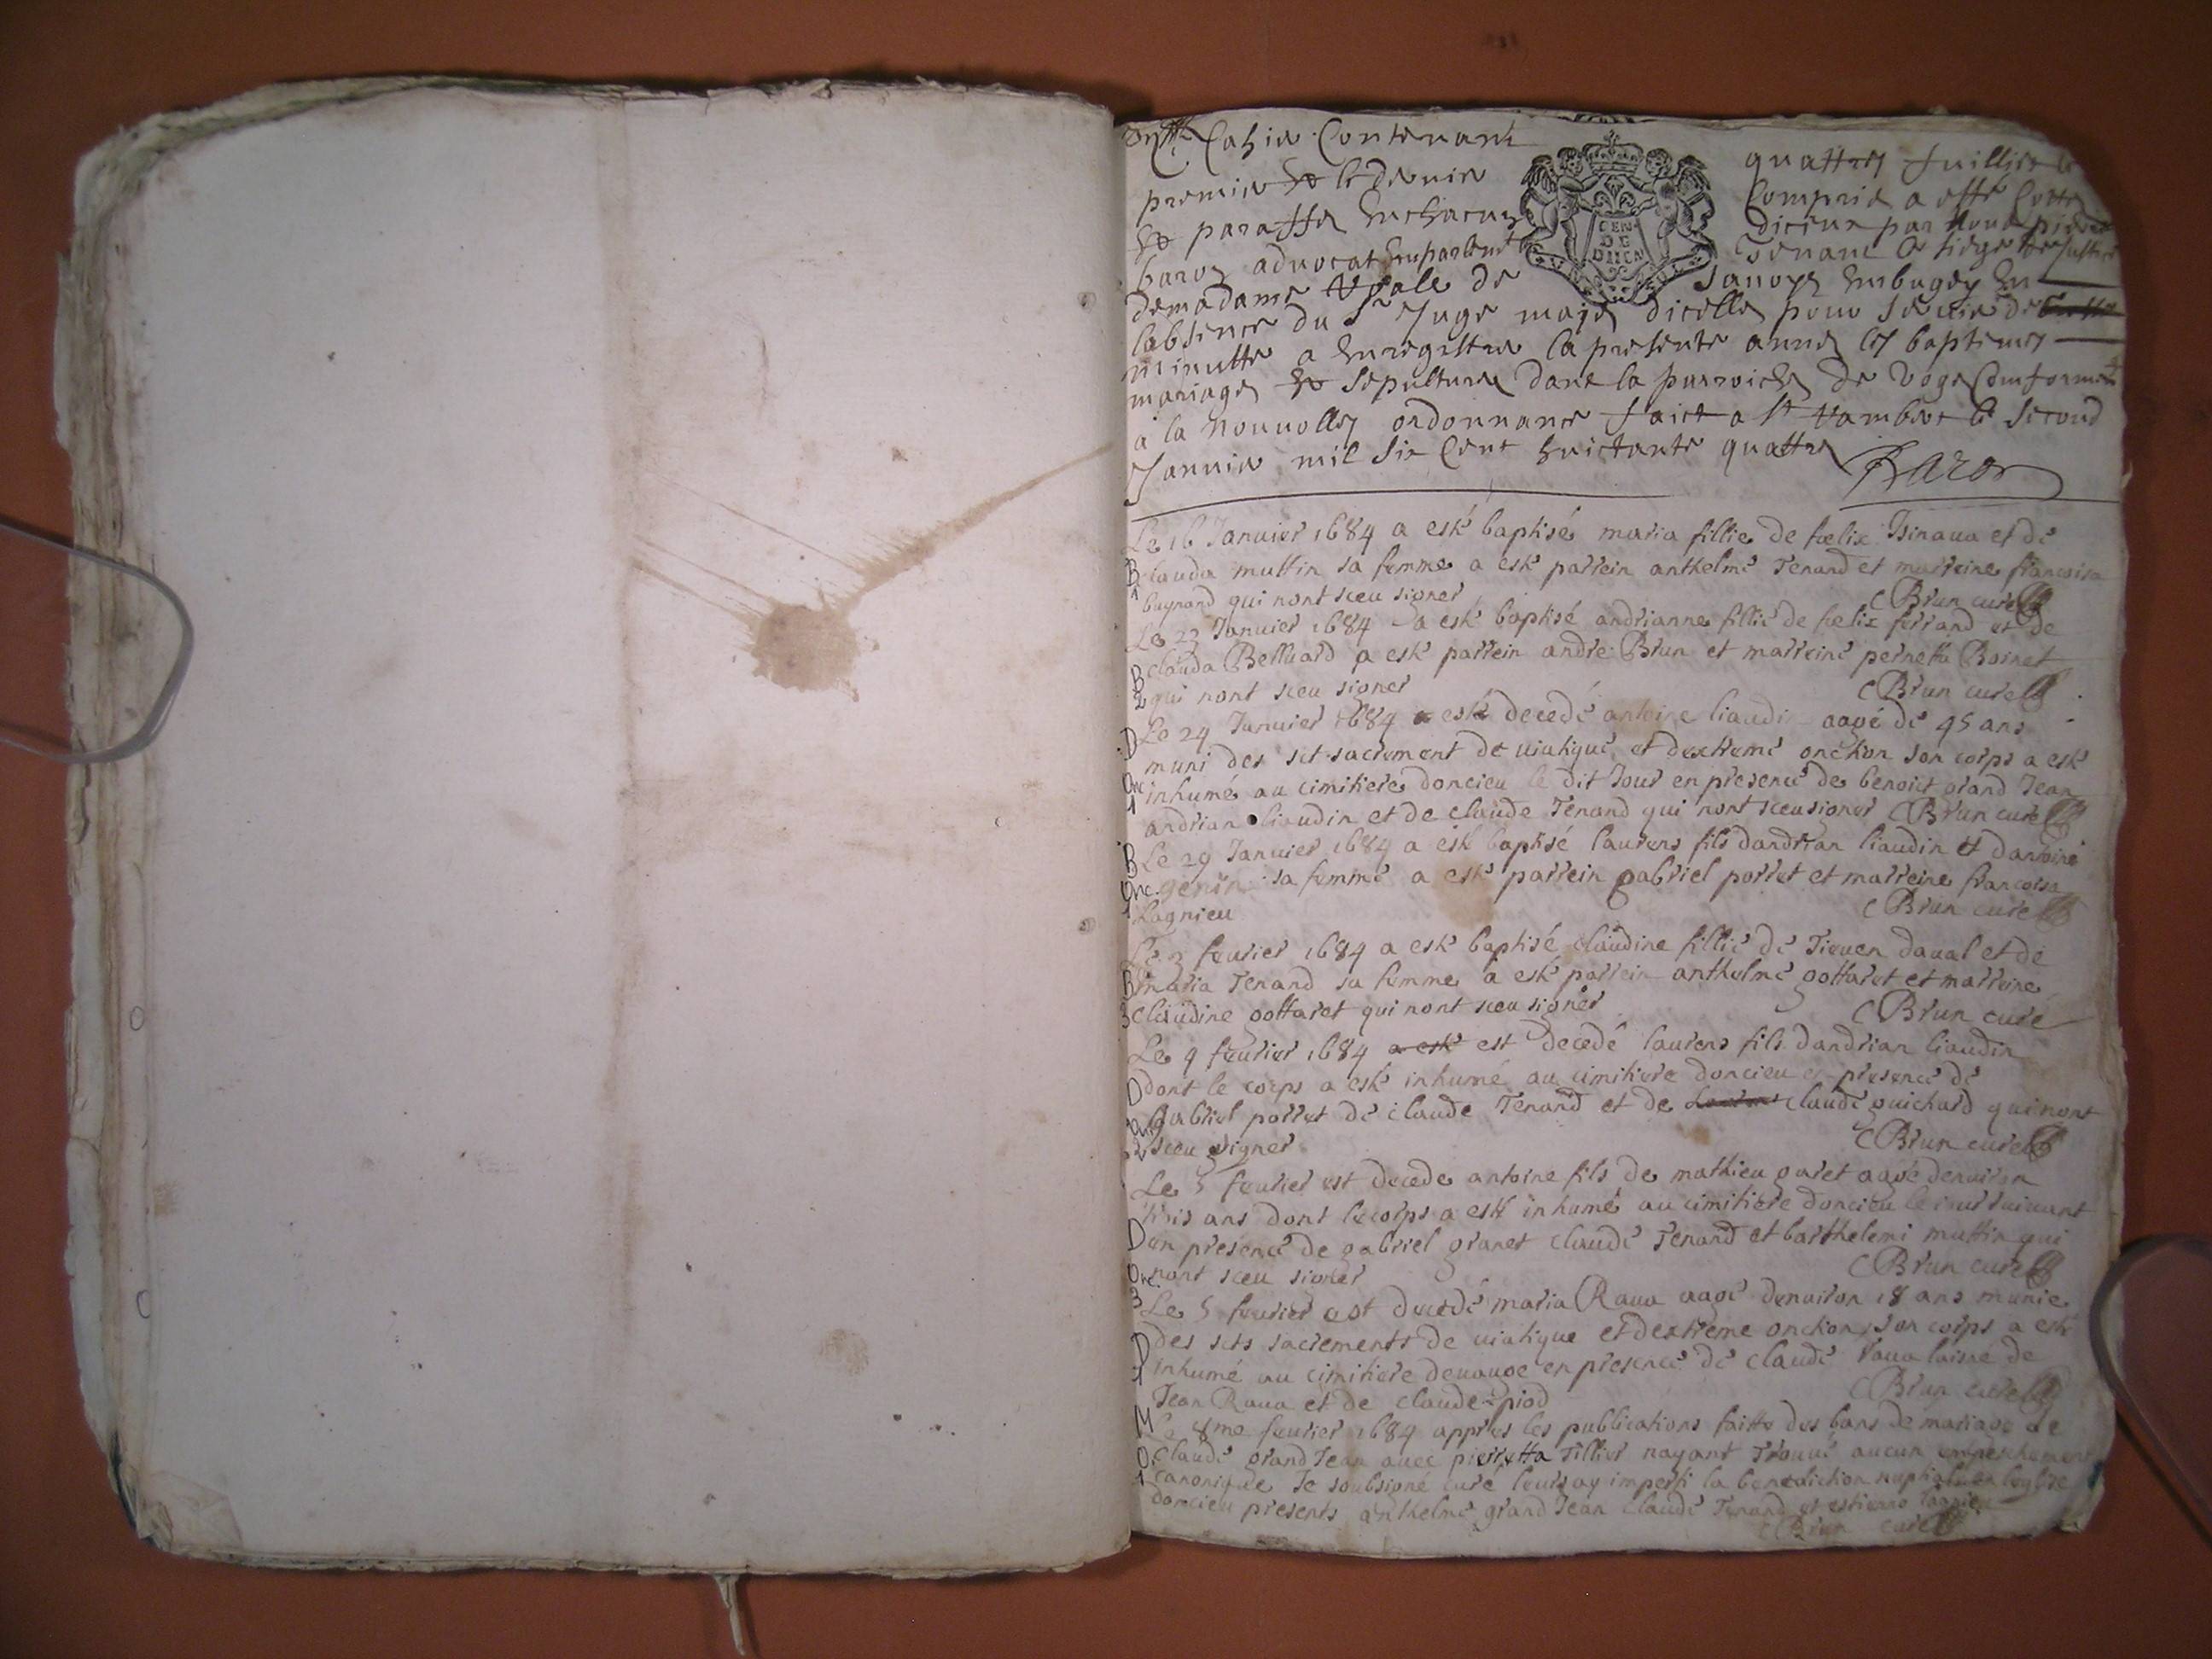 Cahier Contenant quattres fuillies le
premier & le dernier Compris a esté Cotté
& paraffé En chacun diceux par Nous pierre
baron advocat Enparlemt Tenant le siege de Justice
CEN DE DUCA
demadame Royale de savoye Enbugey En
labsence du Sr Juge maje dicelle pour servir de
minutte a Enregistrer la presente année les baptemes
mariages & sepultures dans la parroiche de voge Comformet
a la nouvelle ordonnance faict a St Rambert le second
Janvier mil six Cent huictante quattre
Le 16 Januier 1684 a esté baptisé maria fillie de fœlix et de
B clauda muttin sa femme a esté parrein anthelme Tenand et marreine francoisa
1 bugnard qui nont sceu signer C Brun curé
Le 23 Januier 1684 a esté baptisé andrianne fillie de fœlix ferrand et de
B clauda Belluard a esté parrein andre Brun et marreine pernetta Boinet
2 qui nont sceu signer C Brun curé
D Le 24 Januier 1684 est decedé antoine liaudin aagé de 45 ans
muni des sct sacrement de viatique et dextreme onction son corps a esté
Onc inhumé au cimitiere doncieu le dit Jour en presence de benoict grand Jean
1 andrian liaudin et de claude Tenand qui nont sceu signer C Brun curé
B Le 29 Januier 1684 a esté baptisé laurens fils dandrian liaudin et dantoine
Onc. genin sa femme a esté parrein gabriel porret et marreine francoisa
1 Lagnieu C Brun curé
Le 2 feurier 1684 a esté baptisé claudine fillie de Tieuen daual et de
B maria Tenand sa femme a esté parrein anthelme gottaret et marreine
3 claudine gottaret qui nont sceu signer C Brun curé
Le 4 feurier 1684 a esté est decedé laurens fils dandrian liaudin
D dont le corps a esté inhumé au cimitiere doncieu en presence de
Onc gabriel porret de claude Tenand et de claude guichard qui nont
2 sceu signer C Brun curé
Le 5 feurier est decede antoine fils de mathieu garet aagé denuiron
trois ans dont le corps a esté inhumé au cimitiere doncieu le iour suiuant
D en presence de gabriel granet claude Tenand et barthelemi muttin qui
Onc. nont sceu signer C Brun curé
3 Le 5 feurier est decedé maria Raua aagé denuiron 18 ans munie
D des scts sacrements de viatique et dextreme onction son corps a esté
1 inhumé au cimitiere deuauge en presence de claude Raua laisne de
Jean Raua et de claude piod C Brun curé
M Le 8me feurier 1684 appres les publications faitte des bans de mariage de
O. claude grand Jean auec pierretta Tillier nayant Trouué aucun empeschement
1 canonique Je soubsigné curé leurs ay imperti la benediction nuptiale en leglise
doncieu presents anthelme grand Jean claude Tenand et estienne lagnieu
C Brun curé